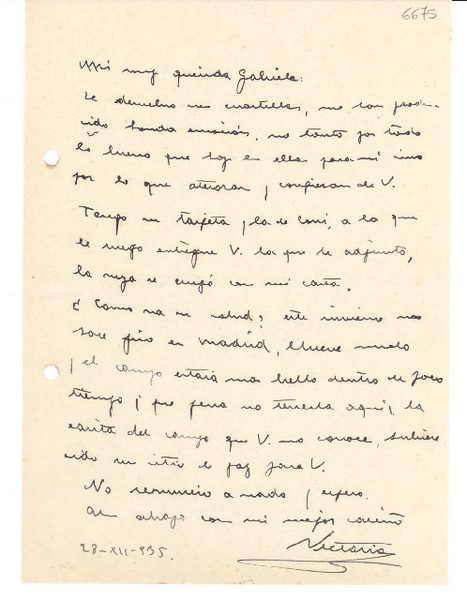 6675
Mi muy querida Gabriela:
Le devuelvo sus cuartillas, me han produ-
cido honda emoción, no tanto por todo
lo bueno que hay en ellas para mí sino
por lo que atesoran y confiesan de V.
Tengo su tarjeta y la de Coni, a la que
le ruego entregue V. la que le adjunto,
la suya se cruzó con mi carta.
¿Como va su salud? este invierno no
hace frío en Madrid, llueve mucho
y el campo estará mas bello dentro de poco
tiempo ¡que pena no tenerla aquí, la
casita del campo que V. no conoce, hubiera
sido un sitio de paz para V.
No renuncio a nada y espero.
Un abrazo con mi mejor cariño
Victoria
23-XII-935.